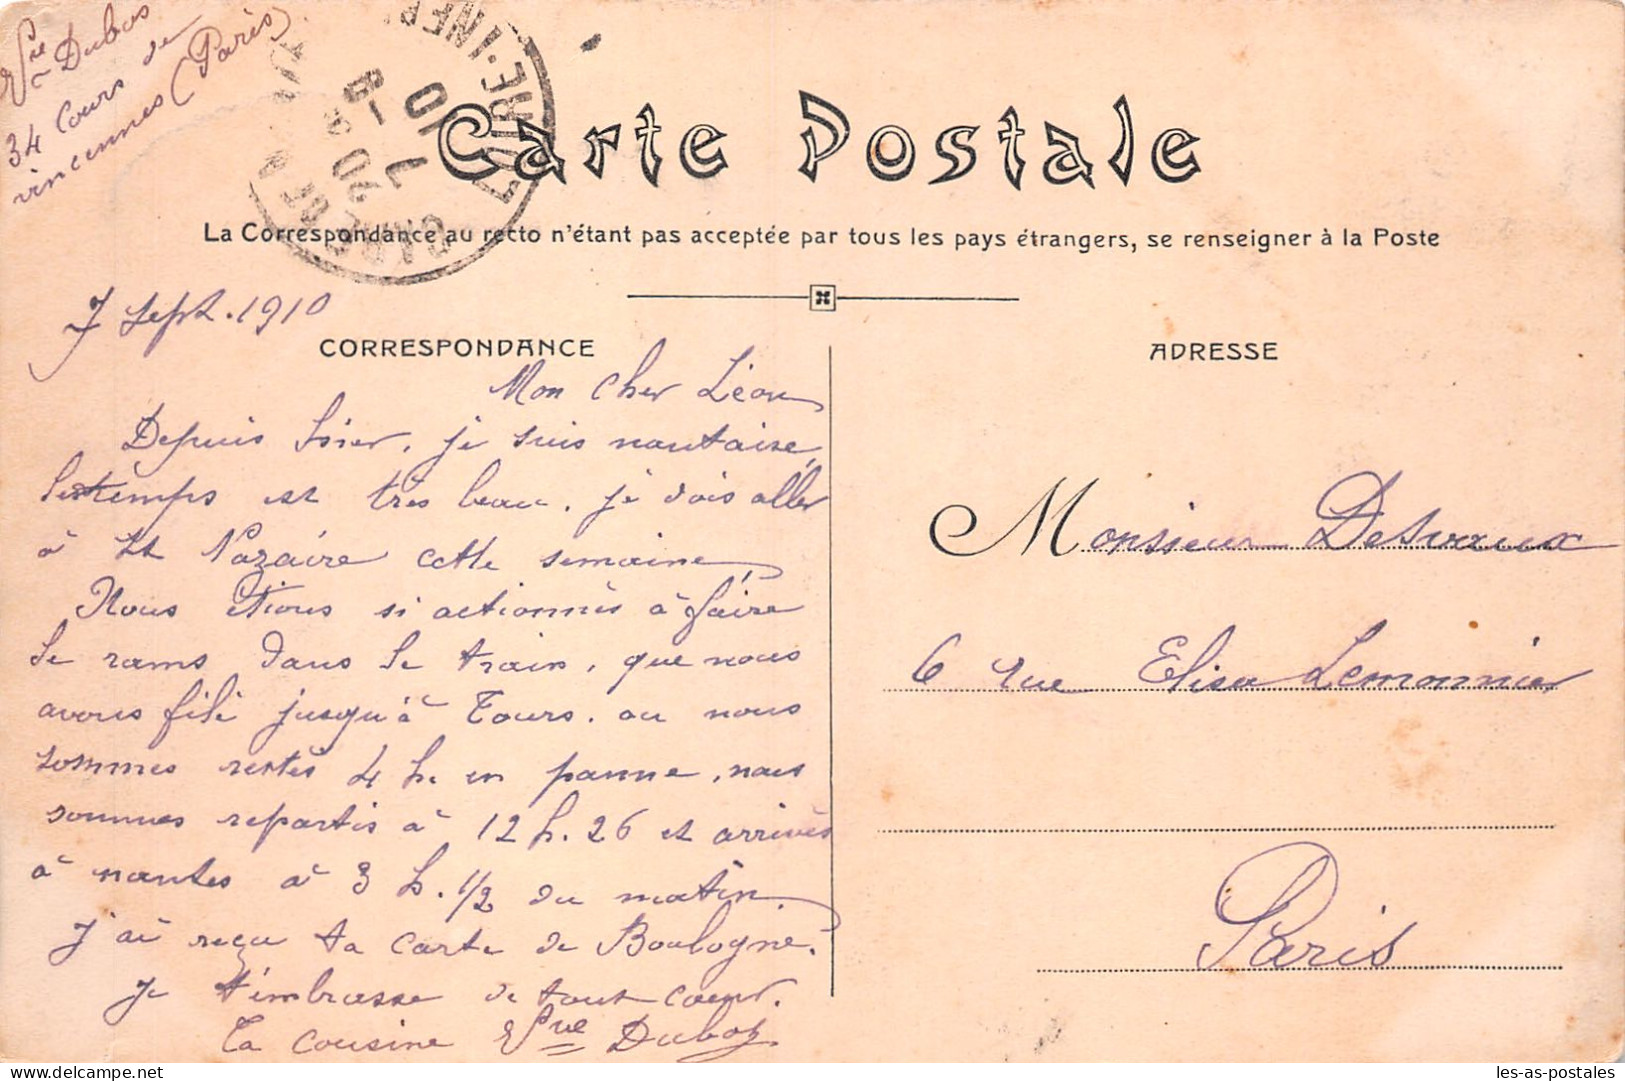 Vve Dubos
34 Cours de
vincennes (Paris)
Carte Postale
La Correspondance au recto n'étant pas acceptée par tous les pays étrangers, se renseigner à la Poste
7 Sept. 1910
CORRESPONDANCE
Mon cher Léon
Depuis hier, je suis nantaise,
le temps est très beau. je dois aller
à St Nazaire cette semaine,
Nous étions si actionnés à faire
le rams dans le train, que nous
avons filé jusqu'à Tours. ou nous
sommes restés 4 h. en panne, nous
sommes repartis à 12 h. 26 et arrivés
à nantes à 3 h. 1/2 du matin.
J'ai reçu ta carte de Boulogne.
Je t'embrasse de tout coeur.
Ta cousine Vve Dubos
ADRESSE
Monsieur Desvaux
6 rue Elisa Lemonnier
Paris
les-as-postales